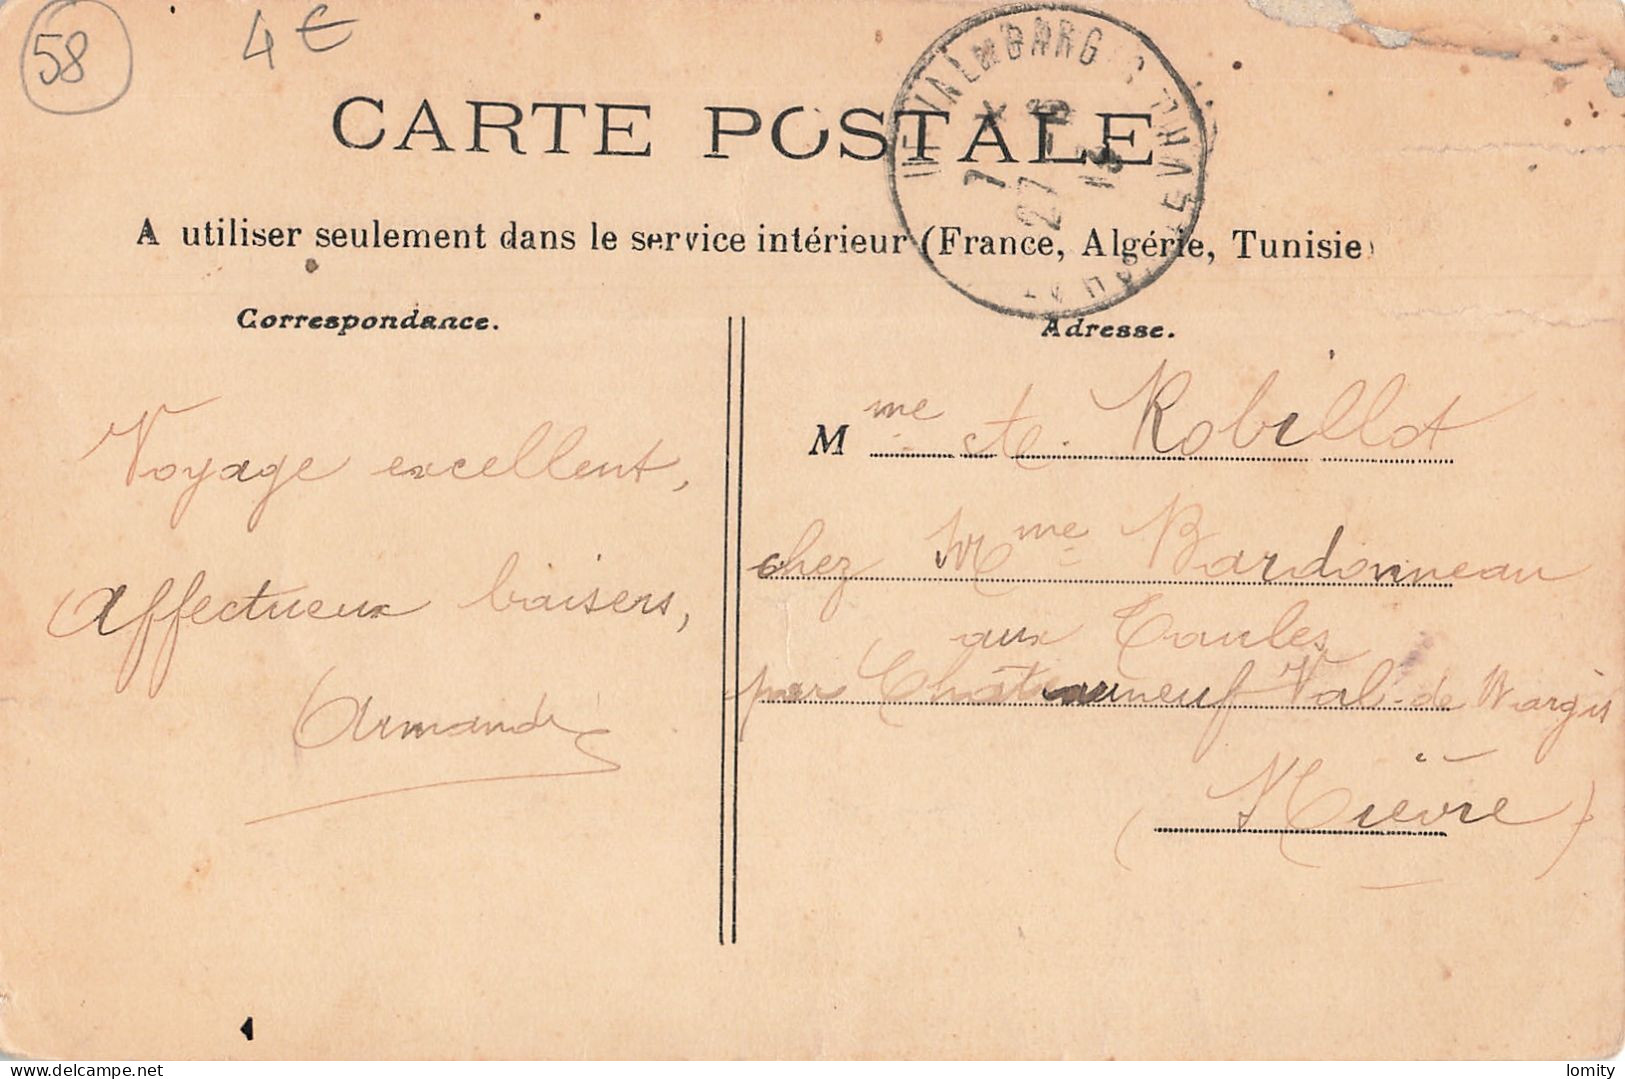 58
4 €
CARTE POSTALE
A utiliser seulement dans le service intérieur (France, Algérie, Tunisie)
27
13
Correspondance.
Adresse.
Voyage excellent,
affectueux baisers,
Armande
Mme Robillot
chez Mme Bardonneau
aux
par Châteauneuf Val-de Bargis
(Nièvre)
lomity